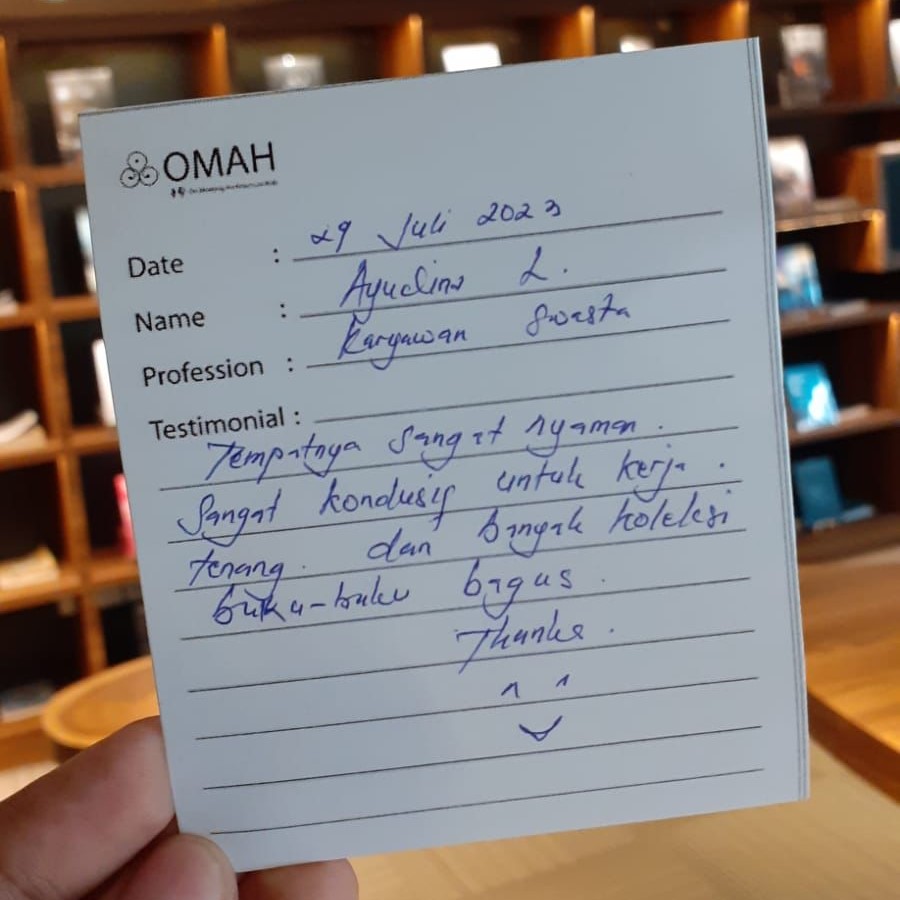 OMAH
Date : 29 Juli 2023
Name : Ayudina L.
Profession : Karyawan Swasta
Testimonial :
Tempatnya Sangat nyaman.
Sangat kondusif untuk kerja.
tenang. dan banyak koleksi
buku-buku bagus.
Thanks.